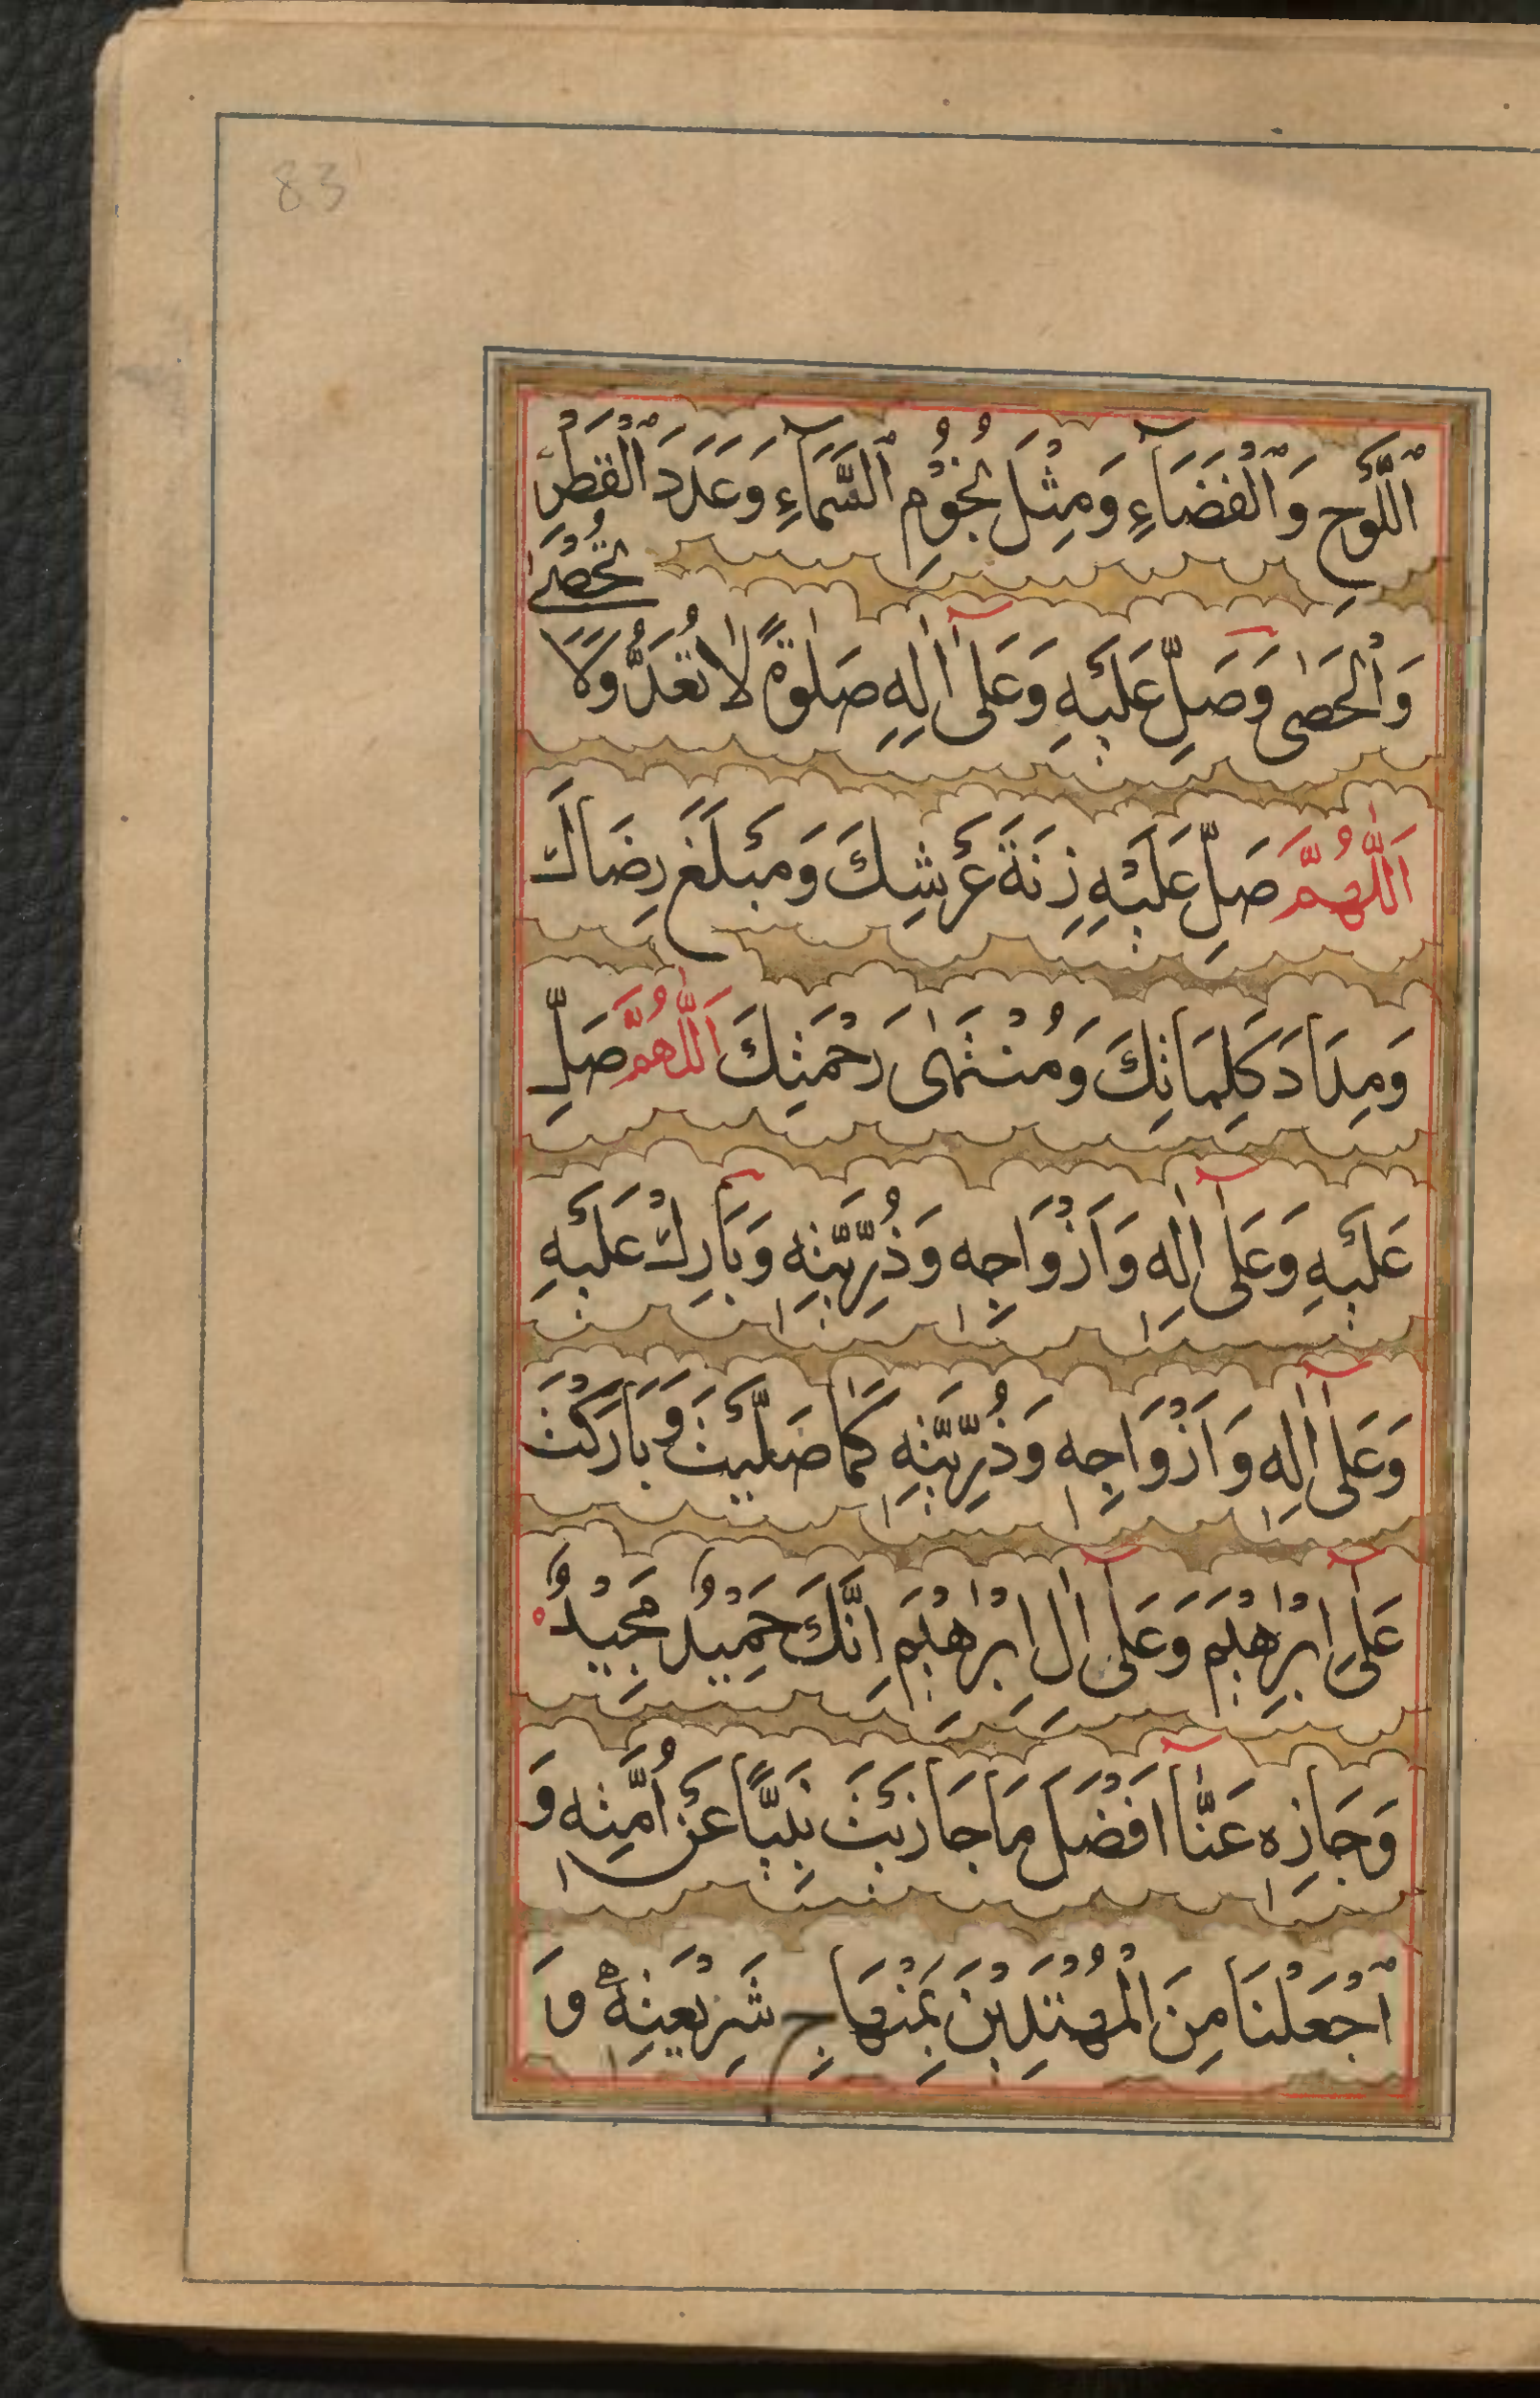 83
اَللَّوْحِ وَالْفَضَآءِ وَمِثْلَ نُجُوْمِ السَّمَآءِ وَعَدَدَ الْقَطْرِ
وَالْحَصٰى وَصَلِّ عَلَيْهِ وَعَلٰٓى اٰلِهٖ صَلٰوةً لَا تُعَدُّ وَلَا
تُحْصٰى
اَللّٰهُمَّ صَلِّ عَلَيْهِ زِنَةَ عَرْشِكَ وَمَبْلَغَ رِضَاكَ
وَمِدَادَ كَلِمَاتِكَ وَمُنْتَهٰى رَحْمَتِكَ اَللّٰهُمَّ صَلِّ
عَلَيْهِ وَعَلٰٓى اٰلِهٖ وَاَزْوَاجِهٖ وَذُرِّيَّتِهٖ وَبَارِكْ عَلَيْهِ
وَعَلٰٓى اٰلِهٖ وَاَزْوَاجِهٖ وَذُرِّيَّتِهٖ كَمَا صَلَّيْتَ وَبَارَكْتَ
عَلٰٓى اِبْرٰهِيْمَ وَعَلٰٓى اٰلِ اِبْرٰهِيْمَ اِنَّكَ حَمِيْدٌ مَّجِيْدٌ
وَجَازِهٖ عَنَّآ اَفْضَلَ مَا جَازَيْتَ نَبِيًّا عَنْ اُمَّتِهٖ وَ
اجْعَلْنَا مِنَ الْمُهْتَدِيْنَ بِمِنْهَاجِ شَرِيْعَتِهٖ وَ